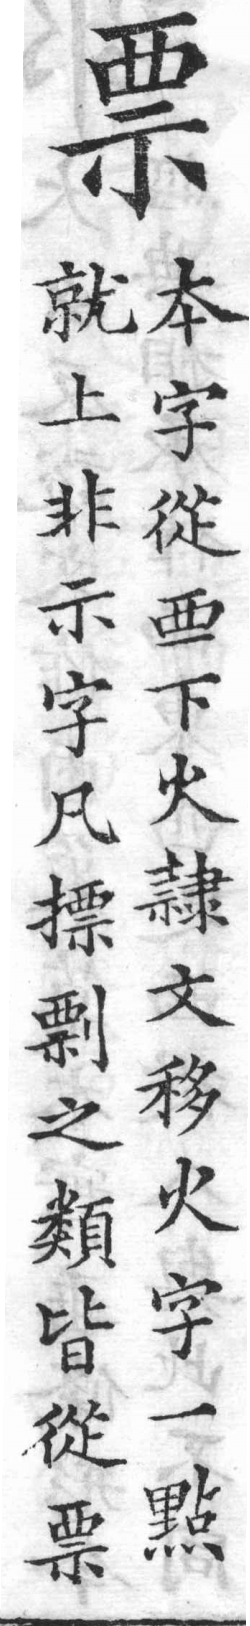 票
本字從覀下火隷文移火字一點
就上非示字凡摽剽之類皆從票